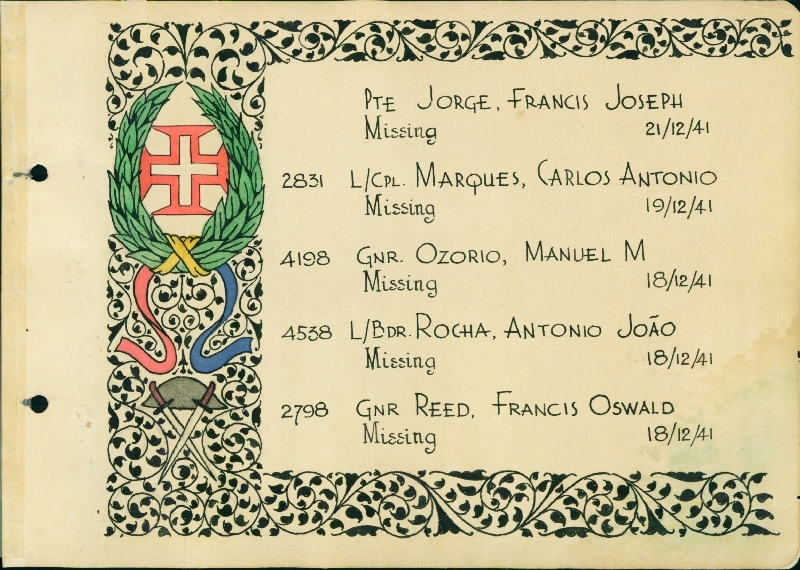 Pte Jorge, Francis Joseph
Missing 21/12/41
2831 L/Cpl. Marques, Carlos Antonio
Missing 19/12/41
4198 Gnr. Ozorio, Manuel M
Missing 18/12/41
4538 L/Bdr. Rocha, Antonio João
Missing 18/12/41
2798 Gnr Reed, Francis Oswald
Missing 18/12/41